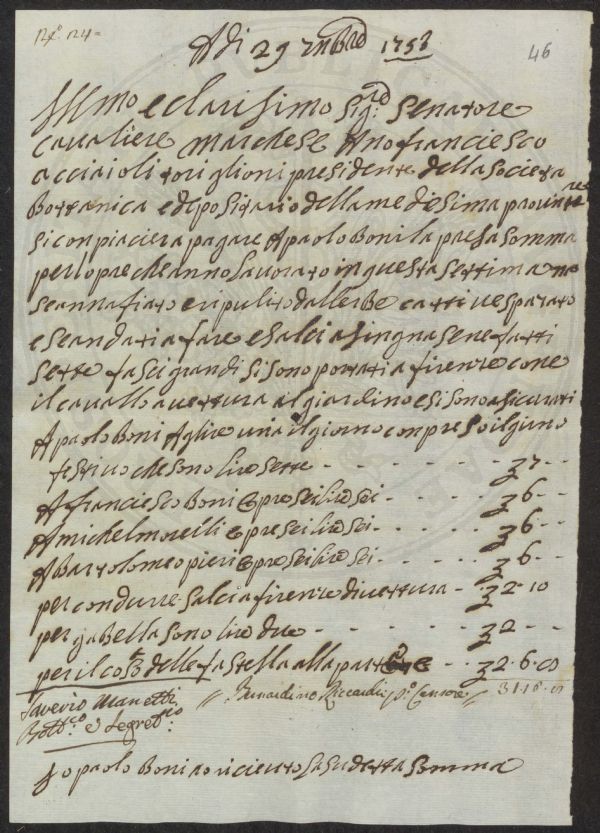 N.º 24=
46
Adi 29 Xmbre 1753
Illmo e clarisimo Sigre Senatore
cavaliere Marchese Ano franciesco
acciaioli toriglioni presidente della societa
Bottanica e depositario della medesima
si conpiaciera pagare A paolo Boni la presa somma
per lopre che anno lavorato in questa settimana
seannafiato e ripulito dallerbe
e seandati a fare e salci a singna sene fatti
sette fasci grandi si sono portati a firenze cone
il cavallo a vettura al giardino e si sono asicurati
A paolo Boni Aglire una il giorno conpreso il giorno
festivo che sono lire sette - - - - - - - 7 - -
A franciesco Boni opre sei lire sei - - - - 6 - -
A michel morelli opre sei lire sei - - - - 6 - -
A Bartolomeo pieri opre sei lire sei - - - 6 - -
per condurre salci a firenze di vettura - - 2 - 10
per gabella sono lire due - - - - - - 2 - -
per il costo delle fastella alla - - 2 . 6 . 8
Saverio Manetti // Bernardino Riccardi Pº Censore // 31.16.8
Bottco e Segretrio
Io paolo Boni o riceuto la sudetta somma